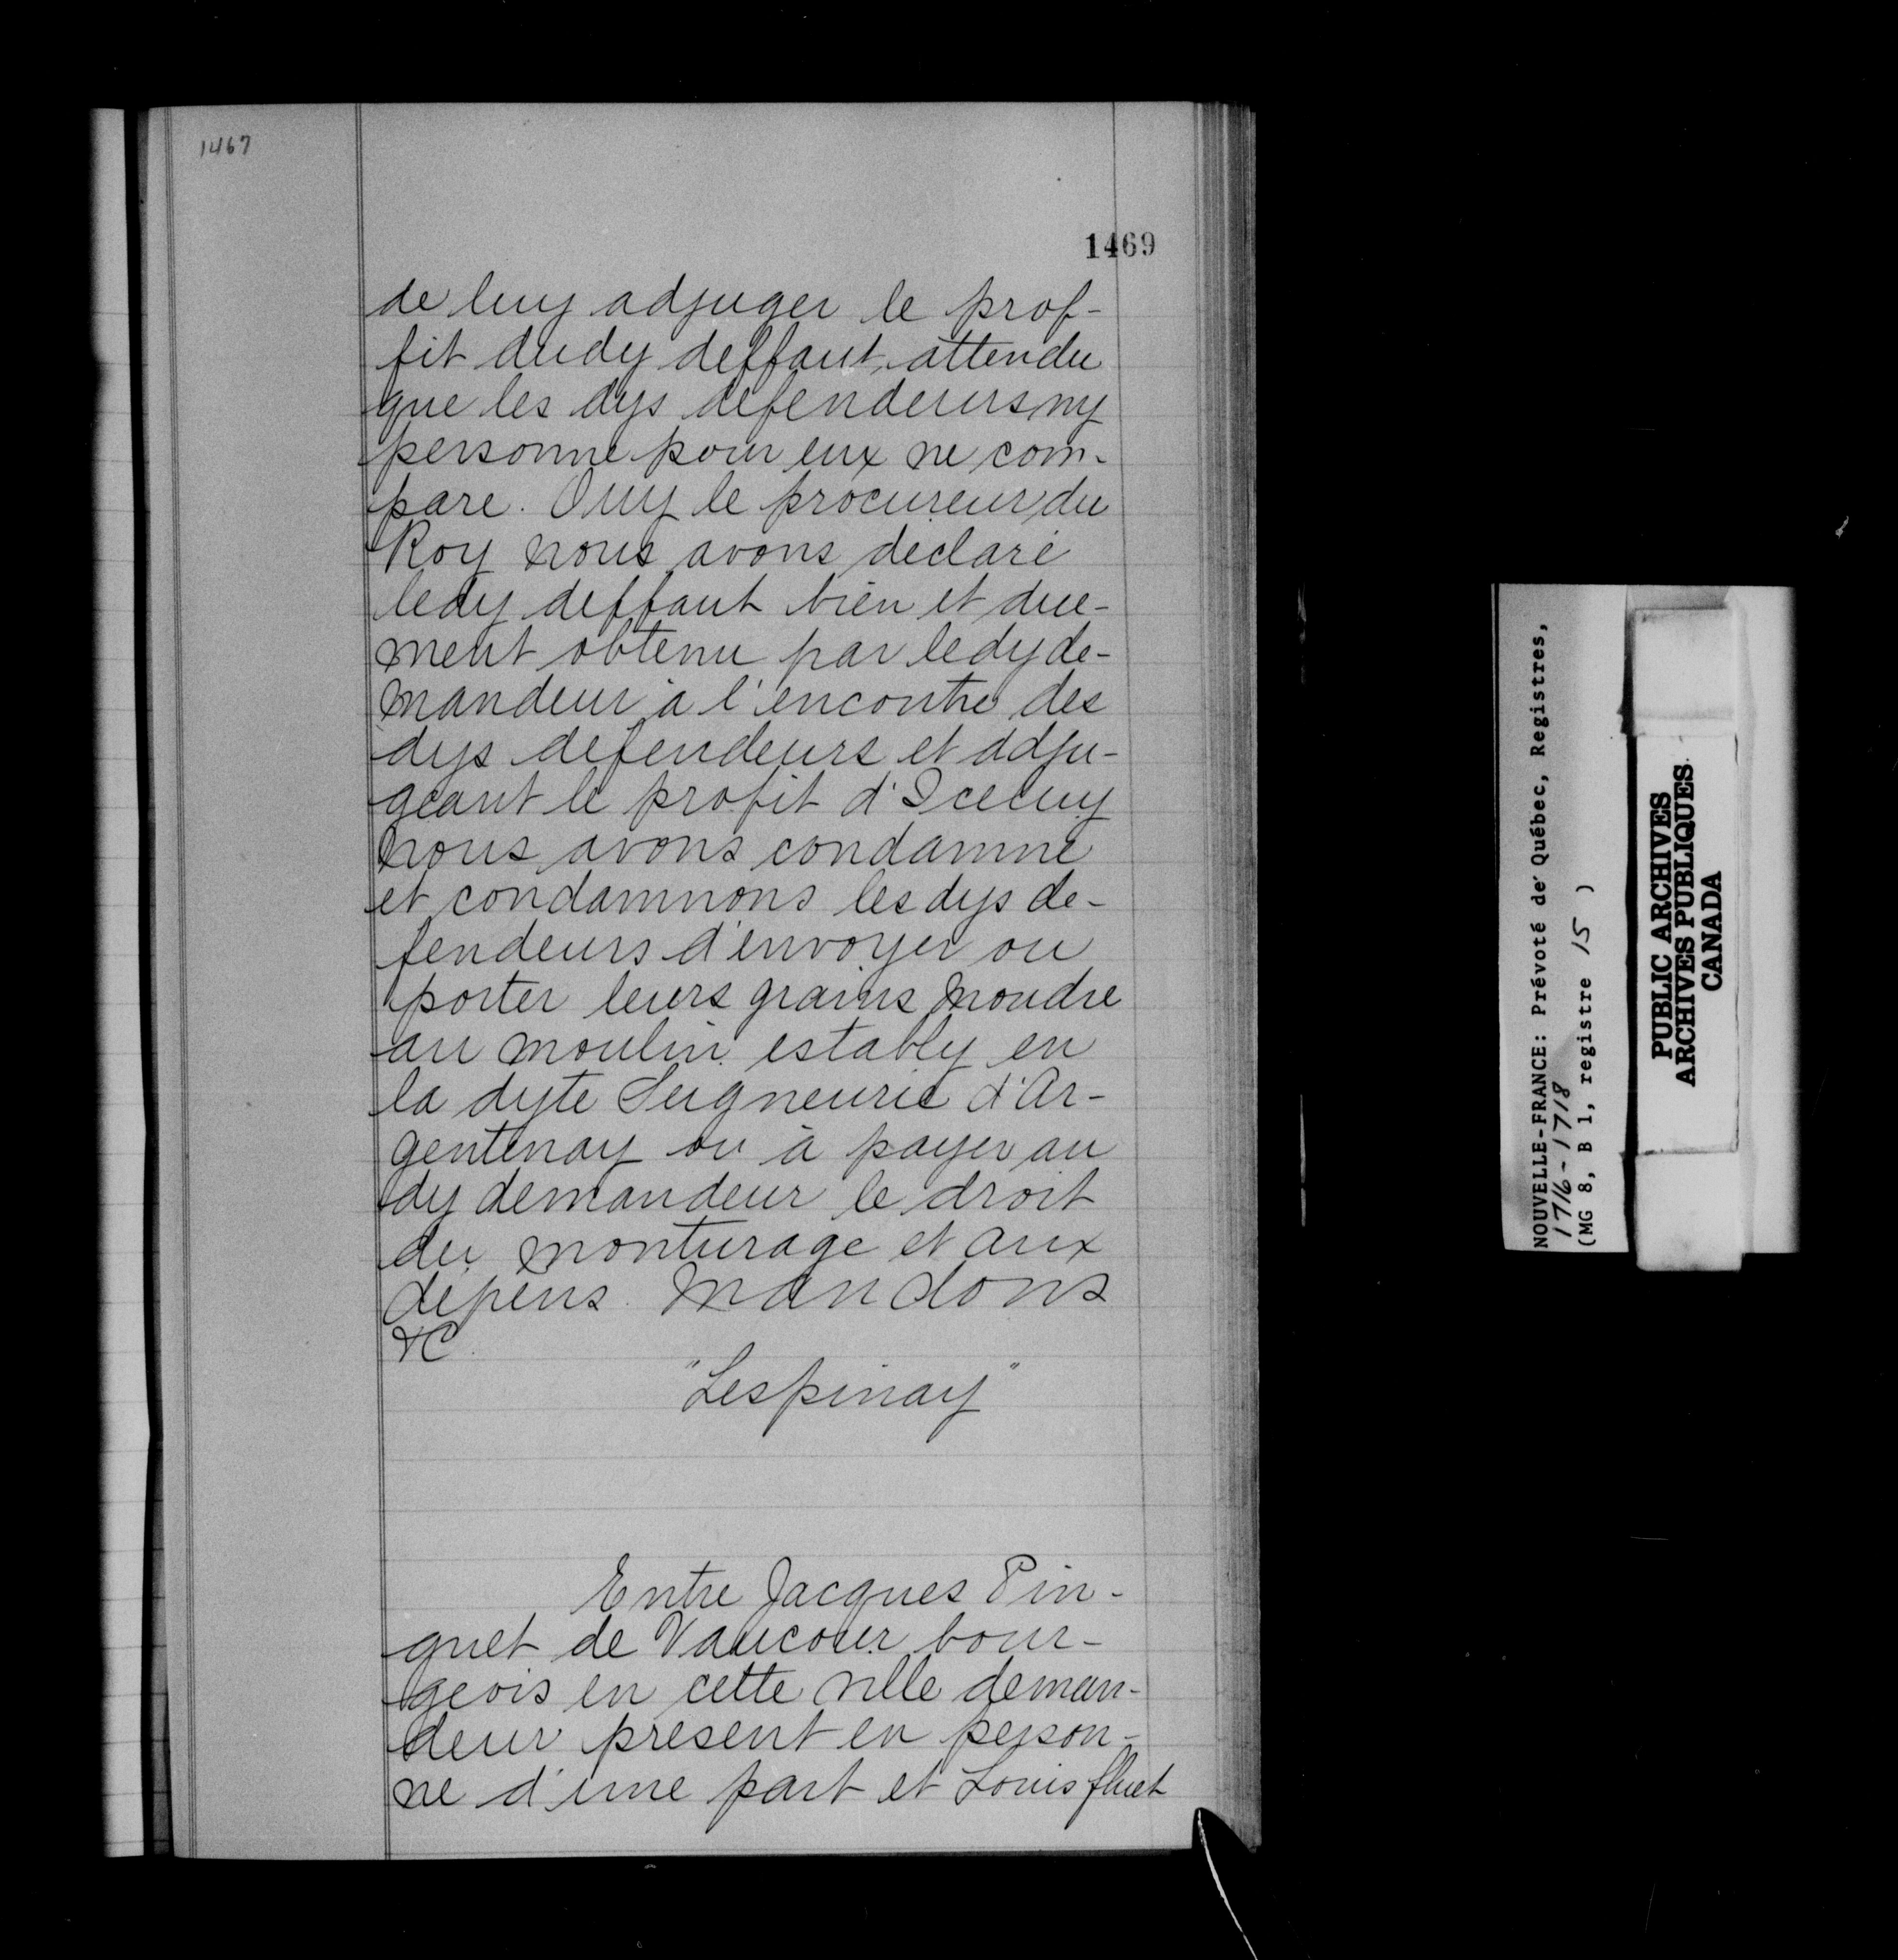 1467
1469
de luy adjuger le prof-
fit dudy deffaut, attendu
que les dys defendeurs ny
personne pour eux ne com-
pare. Ouy le procureur du
Roy nous avons declaré
ledy deffaut bien et due-
ment obtenu par ledy de-
mandeur à l'encontre des
dys defendeurs et adju-
geant le profit d'Iceluy
nous avons condamné
et condamnons les dys de-
fendeurs d'envoyer ou
porter leurs grains moudre
au moulin estably en
la dyte Seigneurie d'Ar-
gentenay ou à payer au
dy demandeur le droit
du monturage et aux
depens. Mandons
&C.
"Lespinay"
Entre Jacques Pin-
guet de Vaucour bour-
geois en cette ville deman-
deur present en person-
ne d'une part et Louis fluet
NOUVELLE-FRANCE: Prévoté de Québec, Registres,
1716-1718
(MG 8, B 1, registre 15 )
PUBLIC ARCHIVES
ARCHIVES PUBLIQUES
CANADA